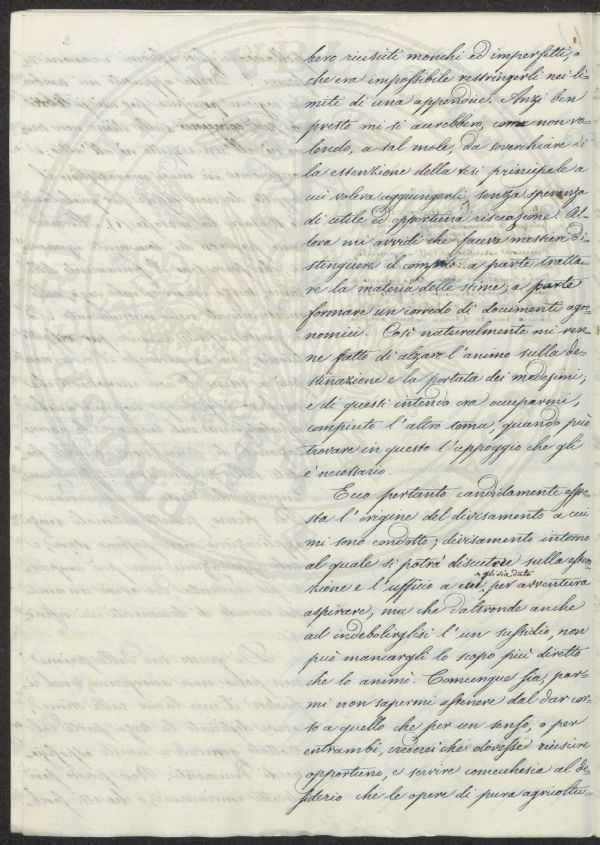 bero riusciti monchi ed imperfetti, o
che era impossibile restringerli nei li-
miti di una appendice. Anzi ben
presto mi si accrebbero, come non vo-
lendo, a tal mole, da soverchiare
la estensione della tesi principale a
cui voleva aggiungerli, senza speranza
di utile ed opportuna riseccazione. Al-
lora mi avvidi che faceva mestiere di-
stinguere il compito: a parte tratta-
re la materia delle stime; a parte
formare un corredo di documenti agro-
nomici. Così naturalmente mi ven-
ne fatto di alzare l'animo sulla de-
stinazione e la portata dei medesimi;
e di questi intendo ora occuparmi,
compiuto l'altro tema, quando può
trovare in questo l'appoggio che gli
è necessario.
Ecco pertanto candidamente espo-
sta l'origine del divisamento a cui
mi sono condotto; divisamento intorno
al quale si potrà discutere sulla esten-
sione e l'ufficio a cui gli sia dato per avventura
aspirare, ma che d'altronde anche
ad indebolirglisi l'un sussidio, non
può mancargli lo scopo più diretto
che lo animò. Comunque sia, par-
mi non sapermi astenere dal dar cor-
so a quello che per un senso, o per
entrambi, crederei che dovesse riuscire
opportuno, e servire comechesia al de-
siderio che le opere di pura agricoltu-